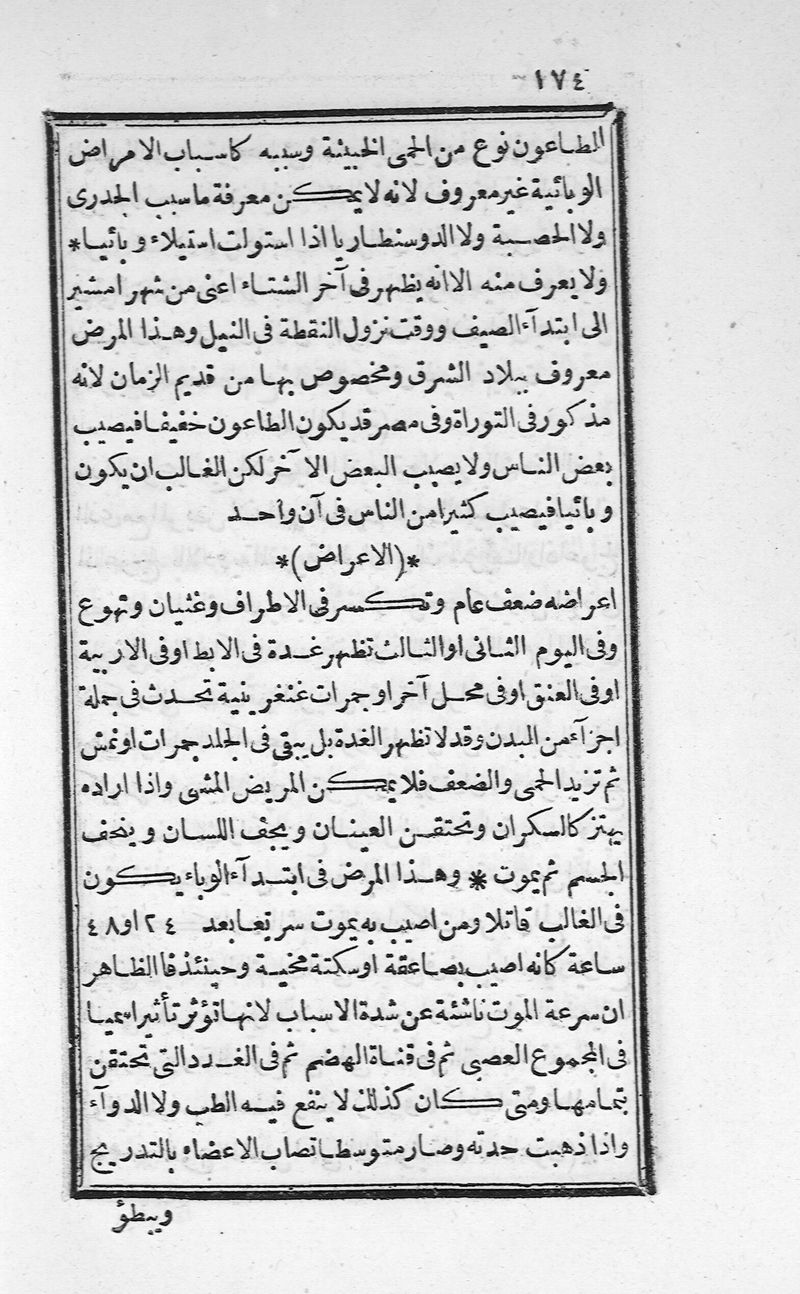 ١٧٤
الطاعون نوع من الحمى الخبيثة وسببه كاسباب الامراض
الوبائية غير معروف لانه لا يمكن معرفة ما سبب الجدرى
ولا الحصبة ولا الدوسنطاريا اذا استولت استيلاء وبائيا *
ولا يعرف منه الا انه يظهر فى آخر الشتاء اعنى من شهر امشير
الى ابتدآء الصيف ووقت نزول النقطة فى النيل وهذا المرض
معروف ببلاد الشرق ومخصوص بها من قديم الزمان لانه
مذكور فى التوراة وفى مصر قد يكون الطاعون خفيفا فيصيب
بعض الناس ولا يصيب البعض الآخر لكن الغالب ان يكون
وبائيا فيصيب كثيرا من الناس فى آن واحد
*(الاعراض)*
اعراضه ضعف عام وتكسر فى الاطراف وغثيان وتهوع
وفى اليوم الثانى او الثالث تظهر غدة فى الابط او فى الاربية
او فى العنق او فى محل آخر او جمرات غنغرينية تحدث فى جملة
اجزآء من البدن وقد لا تظهر الغدة بل يبقى فى الجلد جمرات او نمش
ثم تزيد الحمى والضعف فلا يمكن المريض المشى واذا اراده
يهتز كالسكران وتحتقن العينان ويجف اللسان وينحف
الجسم ثم يموت * وهذا المرض فى ابتدآء الوباء يكون
فى الغالب قاتلا ومن اصيب به يموت سريعا بعد ٢٤ او ٤٨
ساعة كانه اصيب بصاعقة او سكتة مخية وحينئذ فالظاهر
ان سرعة الموت ناشئة عن شدة الاسباب لانها تؤثر تأثيرا سميا
فى المجموع العصبى ثم فى قناة الهضم ثم فى الغدد التى تحتقن
بتمامها ومتى كان كذلك لا ينفع فيه الطب ولا الدوآء
واذا ذهبت حدته وصار متوسطا تصاب الاعضاء بالتدريج
ويبطؤ